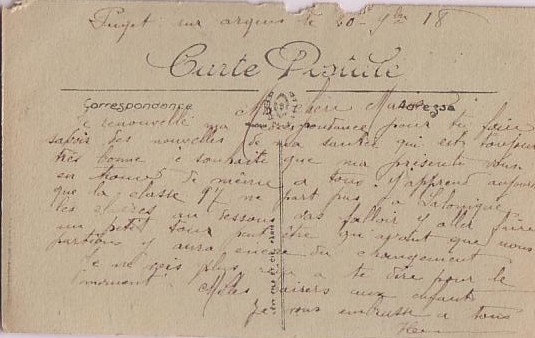 Puget sur argens le 20 - 9bre 18
Carte Postale
Correspondance
Adresse
Ma chère Marie
Je renouvelle ma correspondance pour te faire
savoir des nouvelles de ma santée qui est toujours
très bonne je souhaite que ma présente vous
en trouve de même a tous. J'apprend aujourd
que la classe 97 ne part pas a Salonique
les au dessous das falloir y aller faire
un petit tour peut être qu avant que nous
partions y aura encore du changement
Je ne vois plus rien a te dire pour le
moment Milles baisers aux enfants
Je vous embrasse a tous